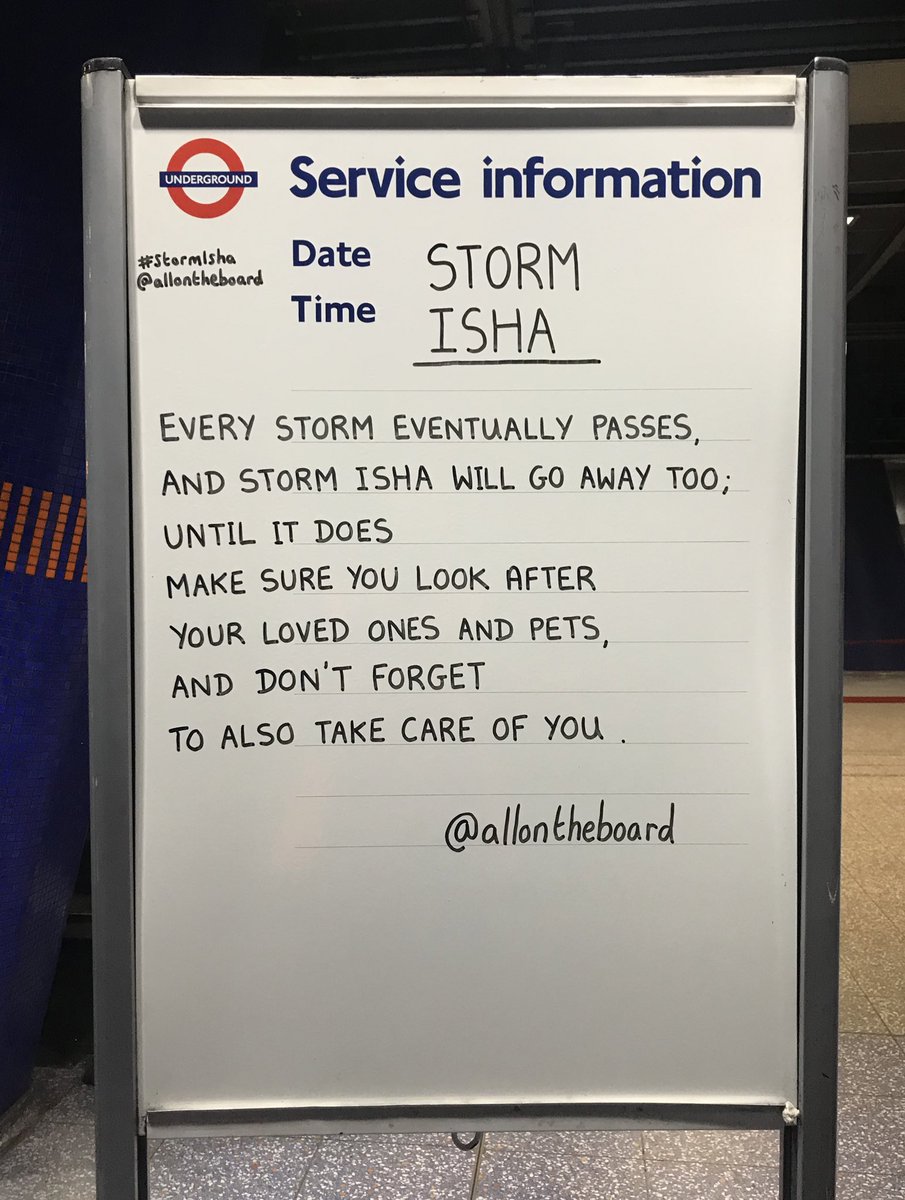 UNDERGROUND
Service information
#StormIsha
@allontheboard
Date
Time
STORM
ISHA
EVERY STORM EVENTUALLY PASSES,
AND STORM ISHA WILL GO AWAY TOO;
UNTIL IT DOES
MAKE SURE YOU LOOK AFTER
YOUR LOVED ONES AND PETS,
AND DON'T FORGET
TO ALSO TAKE CARE OF YOU .
@allontheboard